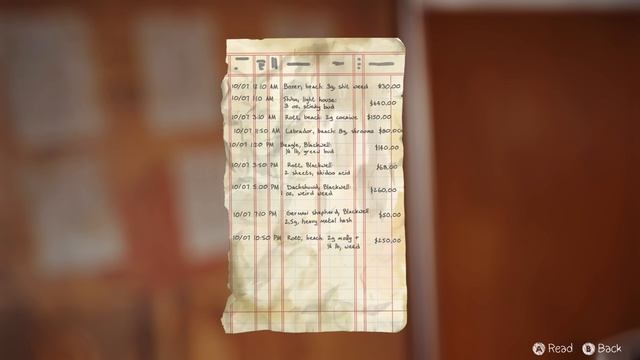 10/07 12:10 AM Boxer, beach: 3g, shit weed $30.00
10/07 1:10 AM Shiba, light house:
3 oz, sticky bud $640.00
10/07 3:10 AM Rott, beach: 2g cocaine $150.00
10/07 11:50 AM Labrador, beach: 8g, shrooms $80.00
10/07 1:20 PM Beagle, Blackwell:
¼ lb, green bud $140.00
10/07 3:50 PM Rott, Blackwell:
2 sheets, skidoo acid $68.00
10/07 5:00 PM Dachshund, Blackwell:
1 oz, weird weed $260.00
10/07 7:10 PM German shepherd, Blackwell:
2.5g, heavy metal hash $50.00
10/07 10:50 PM Rott, beach: 2g molly +
¼ lb, weed $250.00
A Read B Back